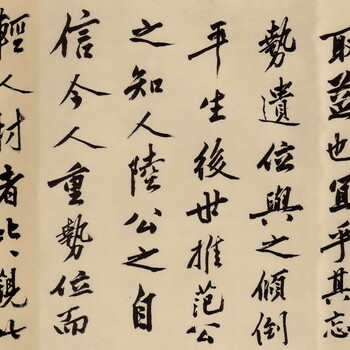 取益也宜乎其忘
勢遺位與之傾倒
平生後世推范公
之知人陸公之自
信今人重勢位而
輕人材者比觀此